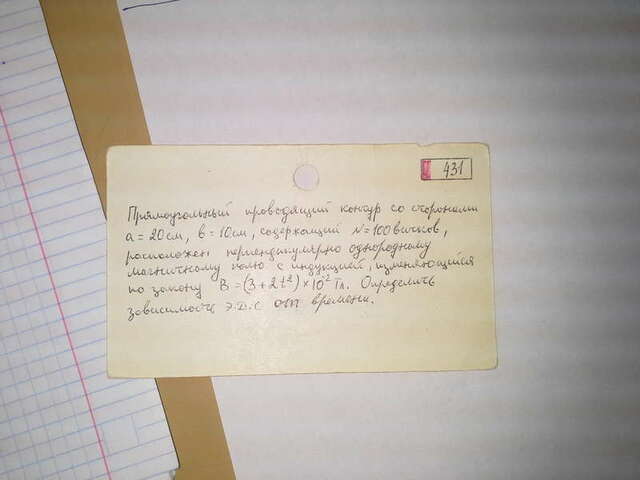 431
Прямоугольный проводящий контур со сторонами
a = 20см, в = 10см, содержащий N = 100 витков,
расположен перпендикулярно однородному
магнитному полю с индукцией, изменяющейся
по закону B = (3 + 2t²) × 10⁻² Тл. Определить
зависимость Э.Д.С от времени.